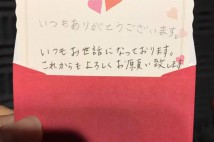 いつもありがとうございます。
いつもお世話になっております。
これからもよろしくお願い致します